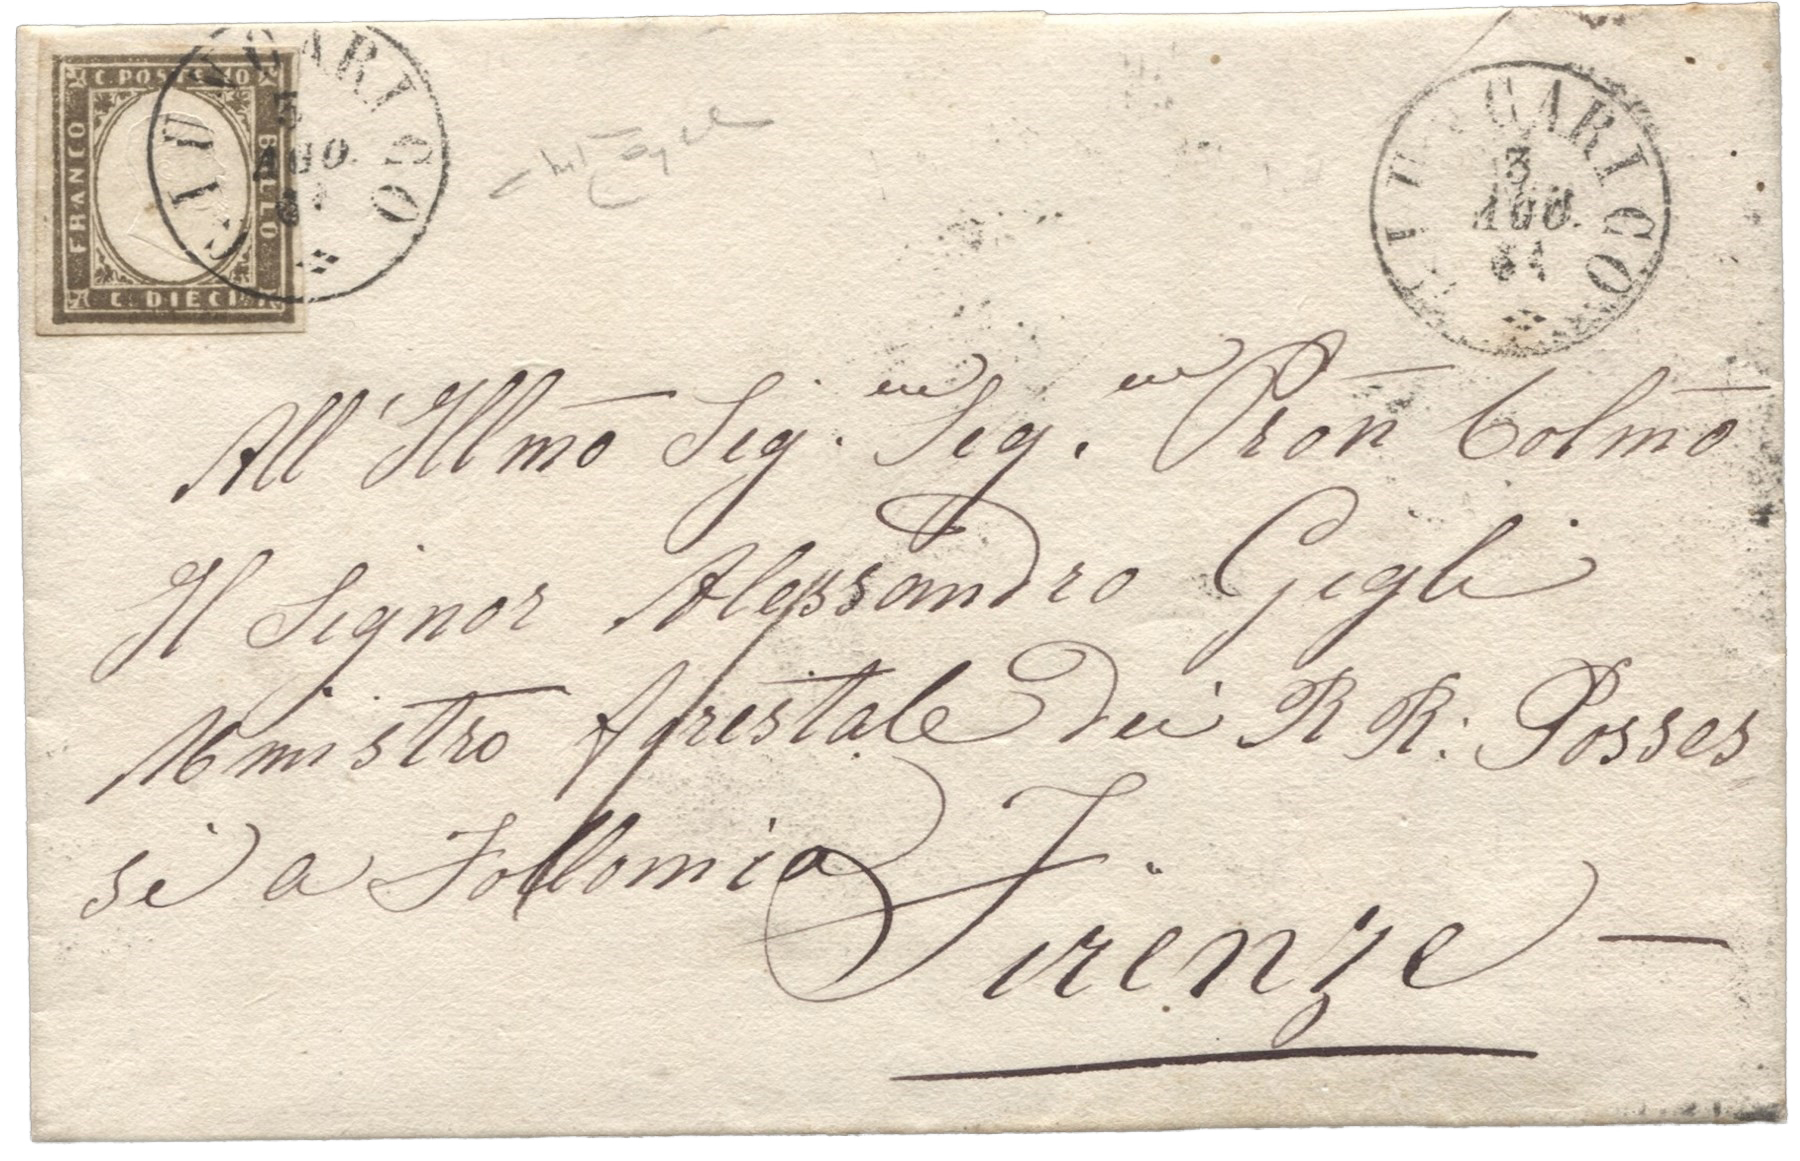 C. POSTE 10
FRANCO
BOLLO
C. DIECI
GIUNCARICO
3
AGO.
61
GIUNCARICO
3
AGO.
61
All' Illmo Sig.re Sig.re Pron Colmo
Il Signor Alessandro Gigli
Ministro Forestale dei RR: Posses
si a Follonica
Firenze —